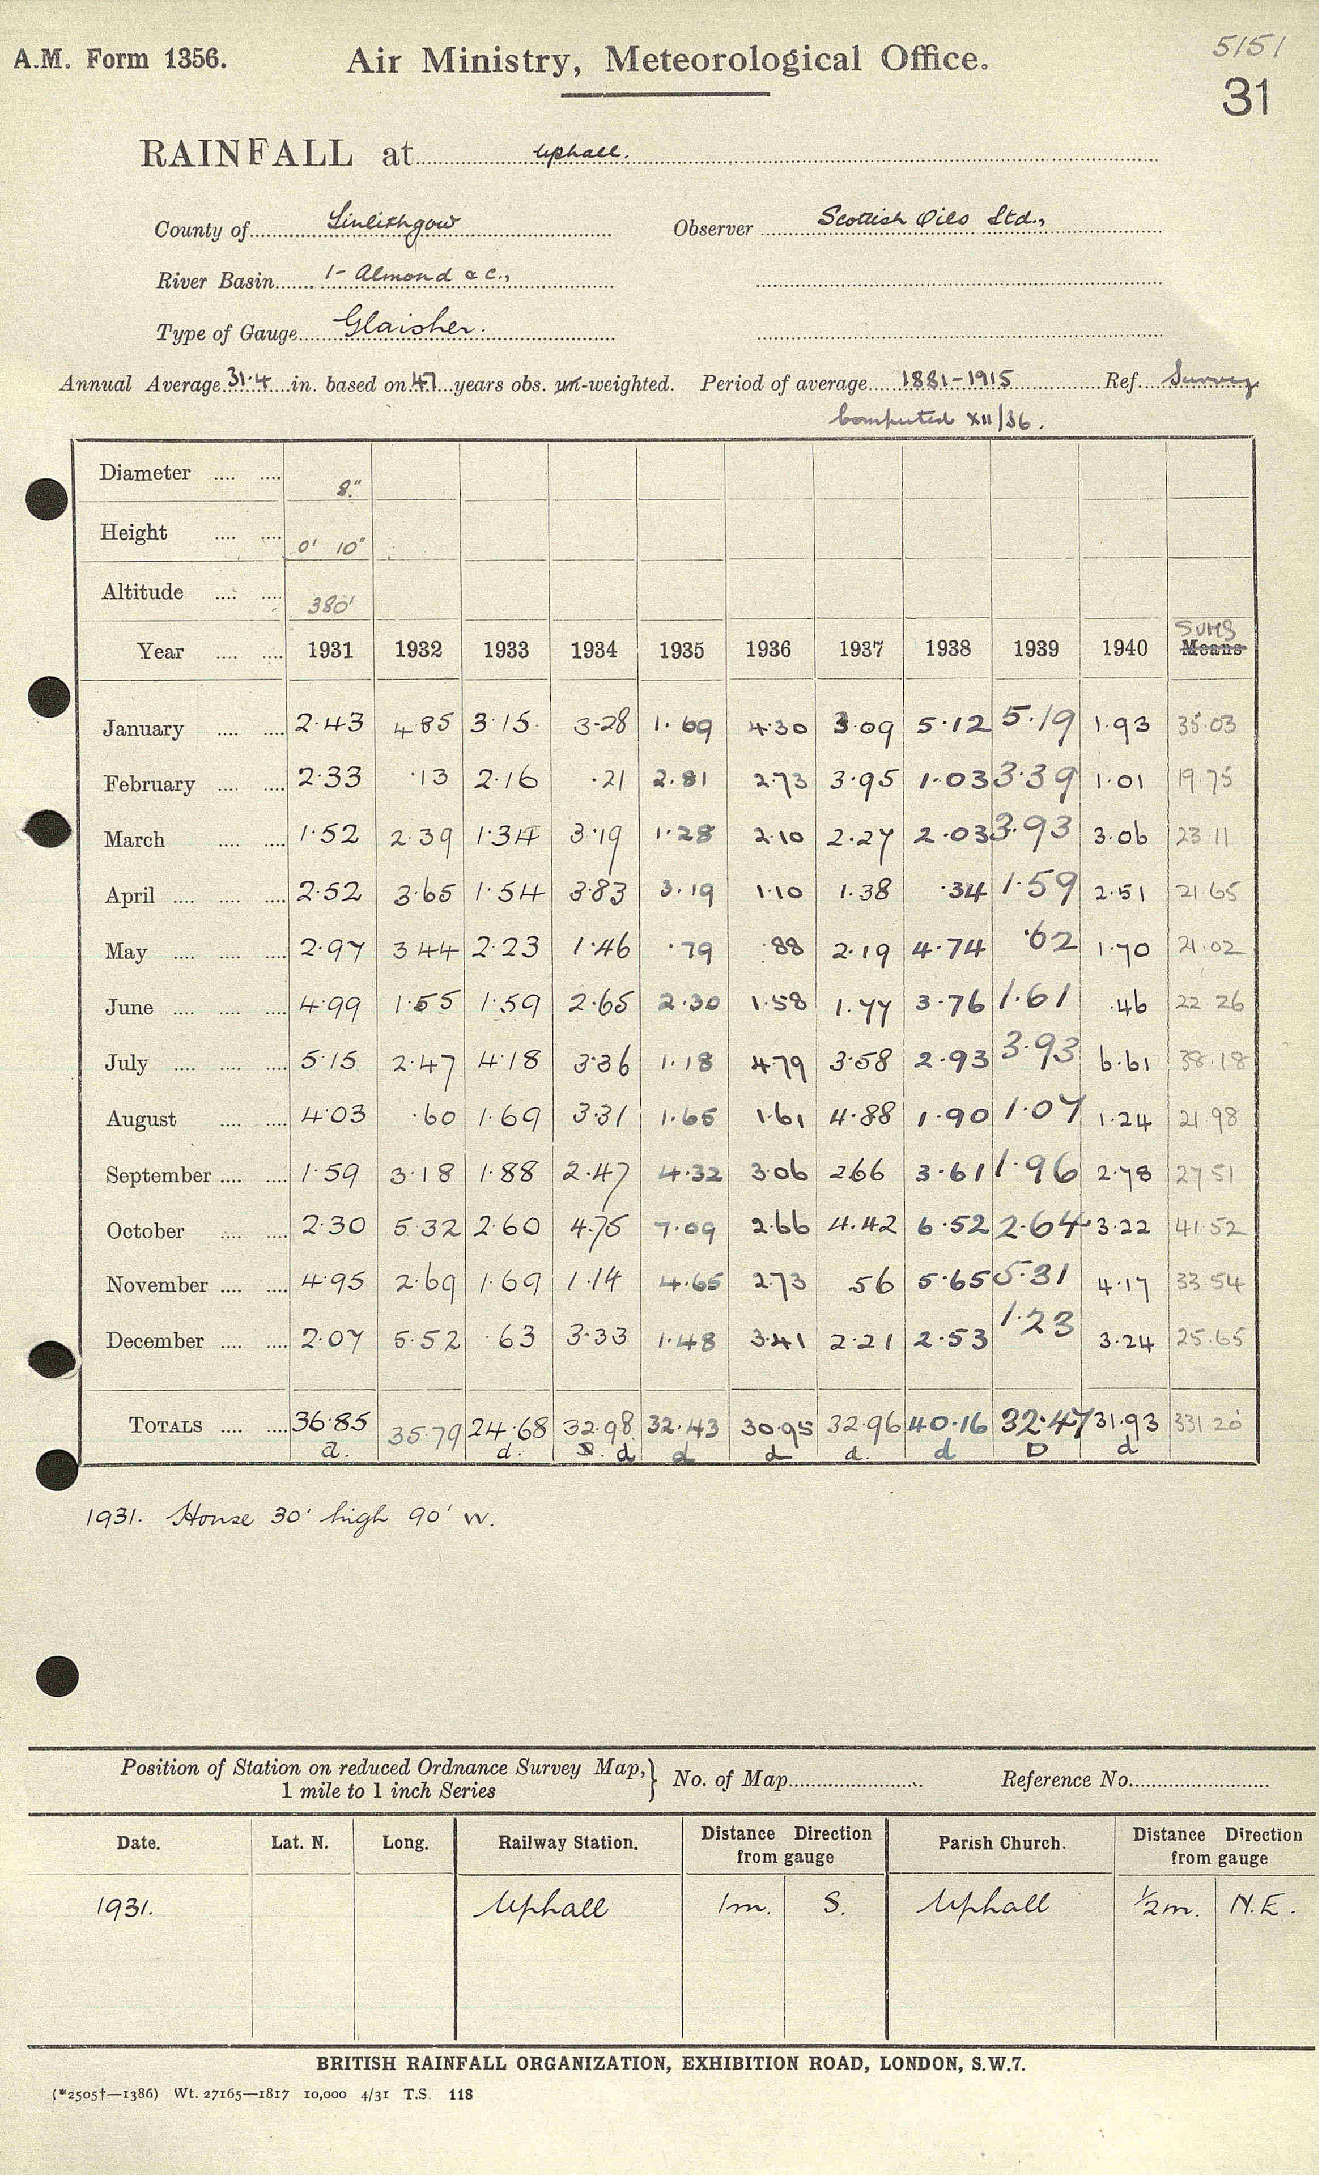 A.M. Form 1356. Air Ministry, Meteorological Office. 5151
31
RAINFALL at Uphall.
County of Linlithgow Observer Scottish Oils Ltd.,
River Basin 1- Almond & c.,
Type of Gauge Glaisher.
Annual Average 31.4 in. based on 47 years obs. un-weighted. Period of average 1881-1915 Ref. Survey
Computed XII/36.
Diameter .... .... 8"
Height .... .... 0' 10"
Altitude .... .... 380'
SUMS
Year .... .... 1931 1932 1933 1934 1935 1936 1937 1938 1939 1940 Means
January .... .... 2.43 4.85 3.15 3.28 1.69 4.30 3.09 5.12 5.19 1.93 35.03
February .... .... 2.33 .13 2.16 .21 2.81 2.73 3.95 1.03 3.39 1.01 19.75
March .... .... 1.52 2.39 1.34 3.19 1.28 2.10 2.27 2.03 3.93 3.06 23.11
April .... .... .... 2.52 3.65 1.54 3.83 3.19 1.10 1.38 .34 1.59 2.51 21.65
May .... .... .... 2.97 3.44 2.23 1.46 .79 .88 2.19 4.74 .62 1.70 21.02
June .... .... .... 4.99 1.55 1.59 2.65 2.30 1.58 1.77 3.76 1.61 .46 22.26
July .... .... .... 5.15 2.47 4.18 3.36 1.18 4.79 3.58 2.93 3.93 6.61 38.18
August .... .... 4.03 .60 1.69 3.31 1.65 1.61 4.88 1.90 1.07 1.24 21.98
September .... .... 1.59 3.18 1.88 2.47 4.32 3.06 2.66 3.61 1.96 2.78 27.51
October .... .... 2.30 5.32 2.60 4.75 7.09 2.66 4.42 6.52 2.64 3.22 41.52
November .... .... 4.95 2.69 1.69 1.14 4.65 2.73 .56 5.65 5.31 4.17 33.54
December .... .... 2.07 5.52 .63 3.33 1.48 3.41 2.21 2.53 1.23 3.24 25.65
TOTALS .... .... 36.85 35.79 24.68 32.98 32.43 30.95 32.96 40.16 32.47 31.93 331.20
a. d. d d d d. d D d
1931. House 30' high 90' W.
Position of Station on reduced Ordnance Survey Map,} No. of Map Reference No.
1 mile to 1 inch Series
Date. Lat. N. Long. Railway Station. Distance Direction from gauge Parish Church. Distance Direction from gauge
1931. Uphall 1m. S. Uphall ½m. N.E.
BRITISH RAINFALL ORGANIZATION, EXHIBITION ROAD, LONDON, S.W.7.
(*2505†—1386) Wt. 27165—1817 10,000 4/31 T.S. 118